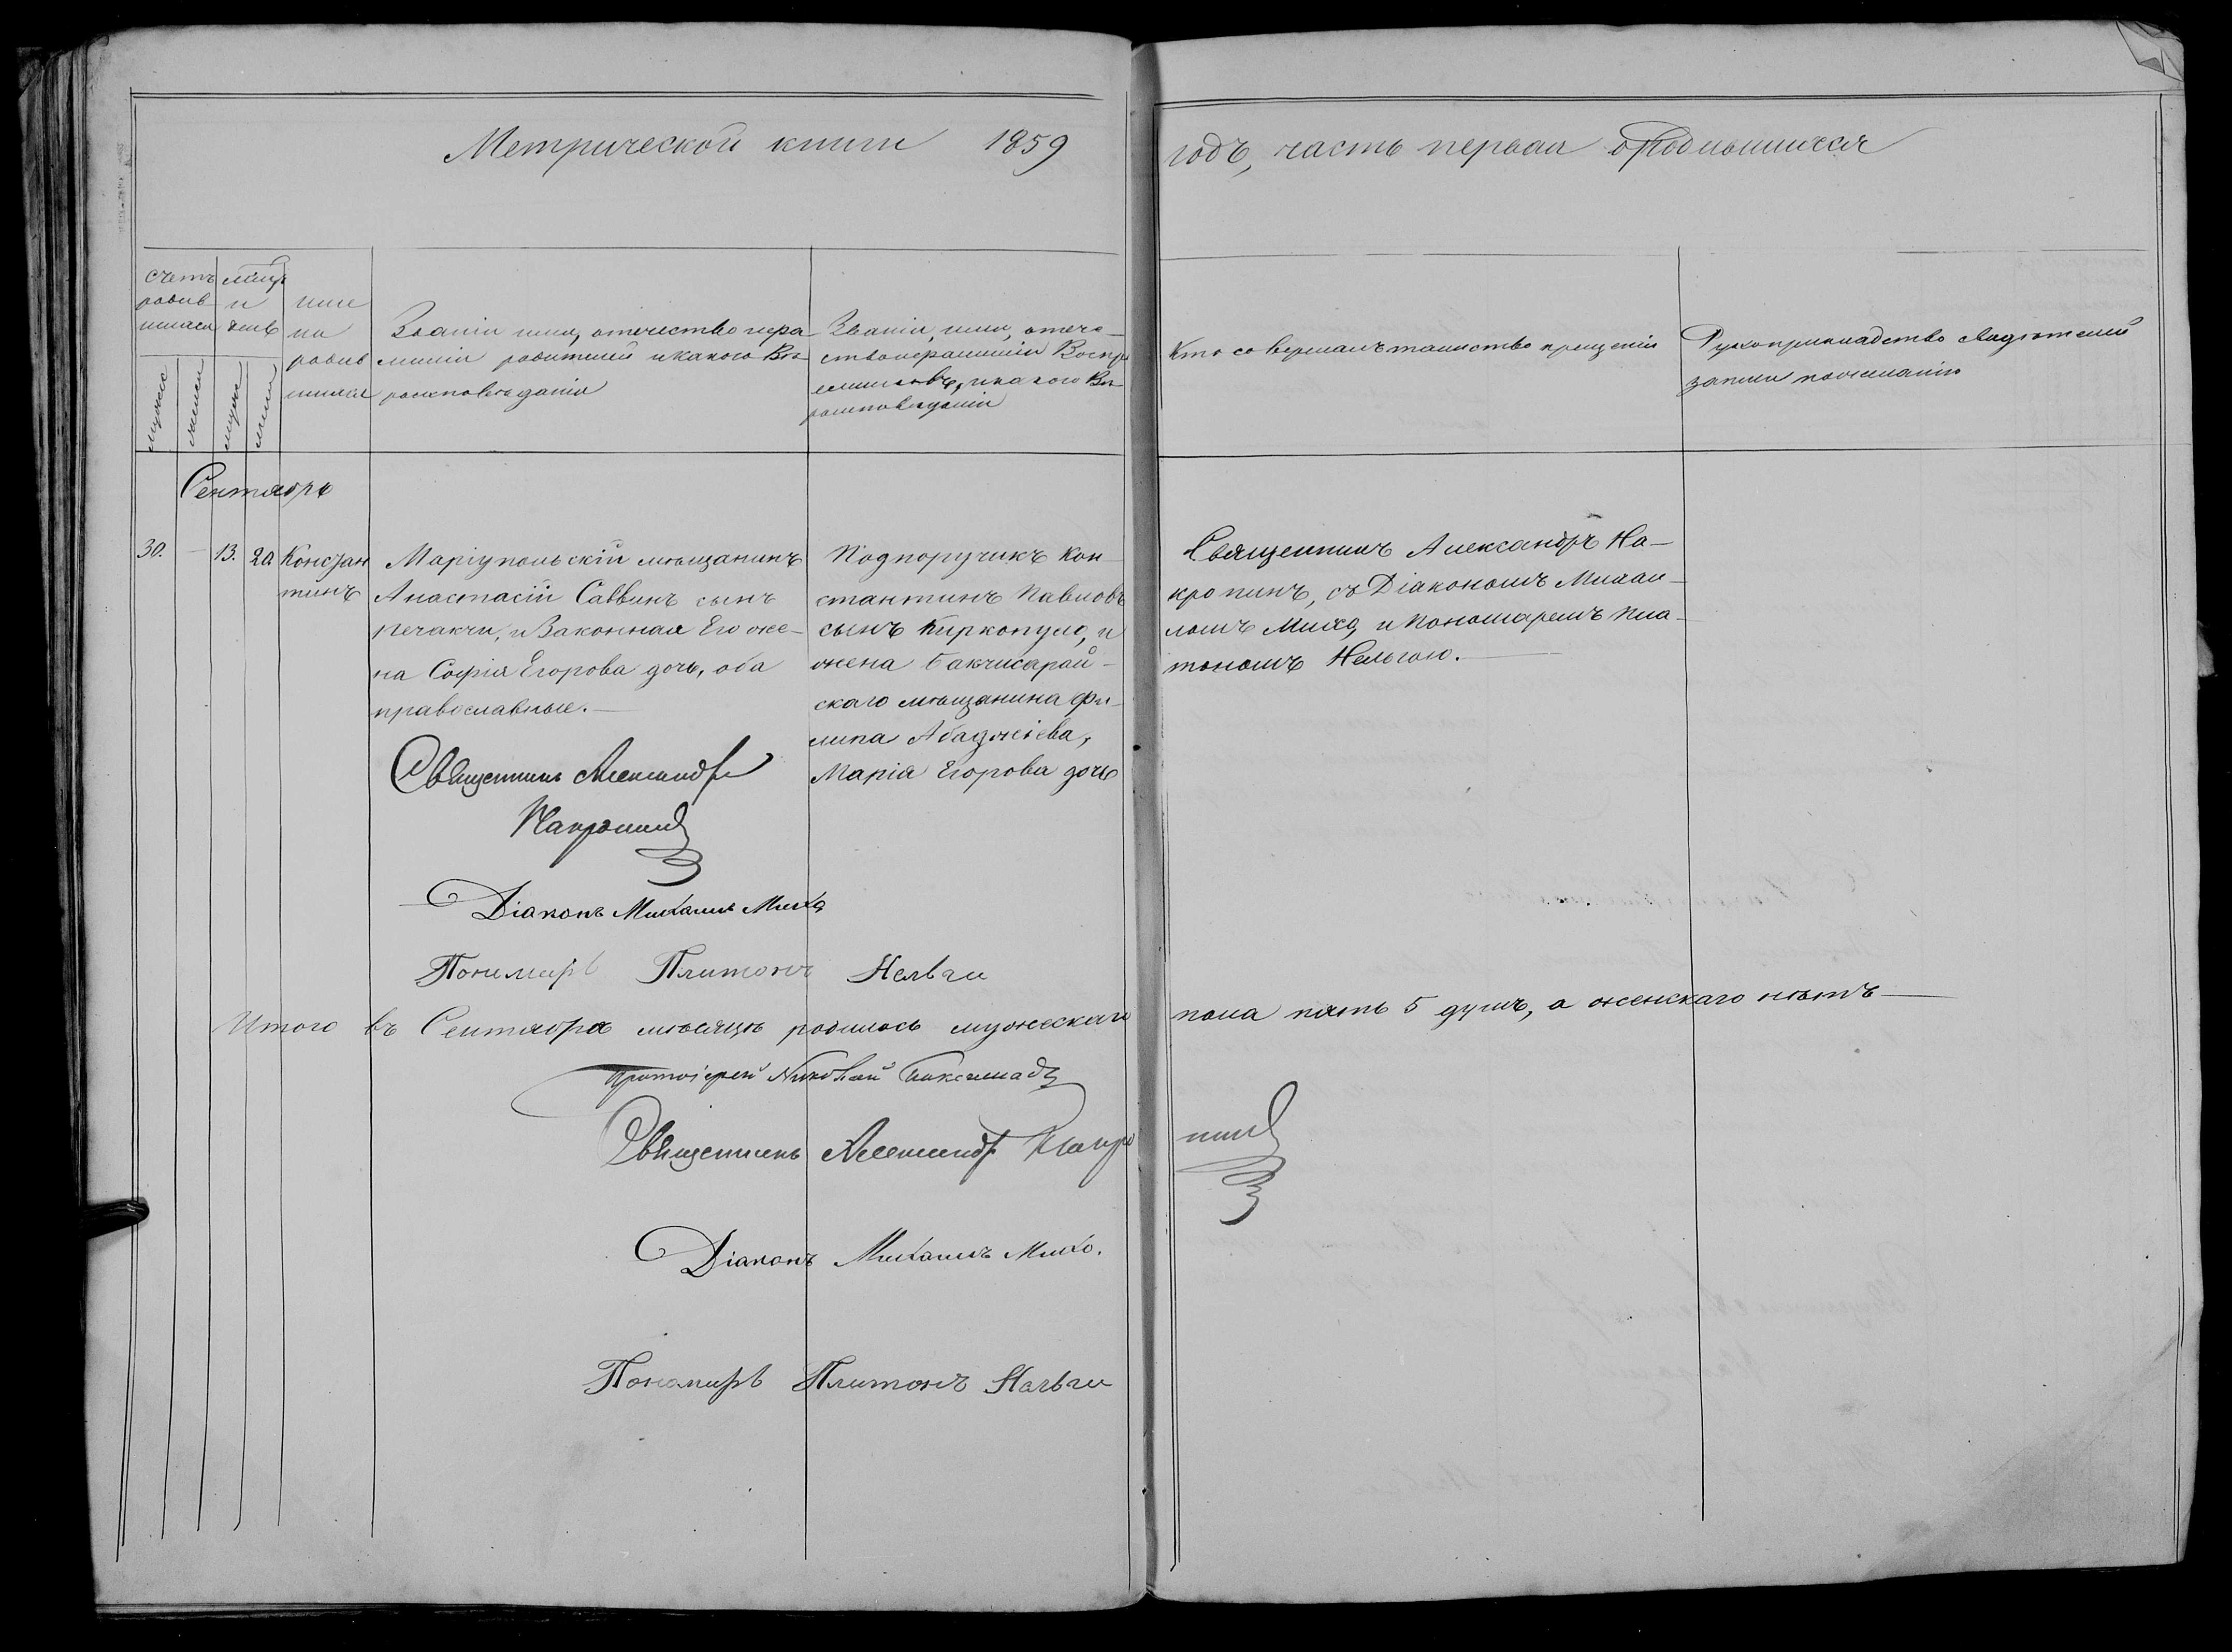 Метрической книги 1859
годъ, часть первая о Родившихся
счетъ
родив
шихся
мужес
женск
и
день
имя
ро
родив
шихся
Званіи имя, отечество и фа-
миліи родителей и какого Ве-
роисповеданія
Званіи, имя, отече-
ство и фамиліи Воспри
емниковъ, и какого Ве-
роисповеданіи
Кто совершалъ таинство крещенія
Рукоприкладство свидетелей
записи по желанію
Сентябрь
30. — 13. 20
Констан
тинъ
Маріупольскій мѣщанинъ
Анастасій Саввинъ сынъ
Печакчи, и Законная Его же-
на Софія Егорова дочь, оба
православные. —
Подпоручикъ Кон-
стантинъ Павловъ
сынъ Киркопуло, и
жена Бакчисарай-
скаго мѣщанина Фи-
липа Абаджіева,
Марія Егорова дочь
Священникъ Александръ На-
кропинъ, съ Діакономъ Михаи-
ломъ Михо, и Пономаремъ Пла-
тономъ Нельгою. —
Священникъ Александръ
Накропинъ
Діаконъ Михаилъ Михо
Пономарь Платонъ Нельги
Итого въ Сентябре мѣсяцѣ родилось мужескаго
пола пять 5 душъ, а женскаго нѣтъ —
Протоіерей Николай
Священникъ Александръ Накро
пинъ
Діаконъ Михаилъ Михо.
Пономарь Платонъ Нельги